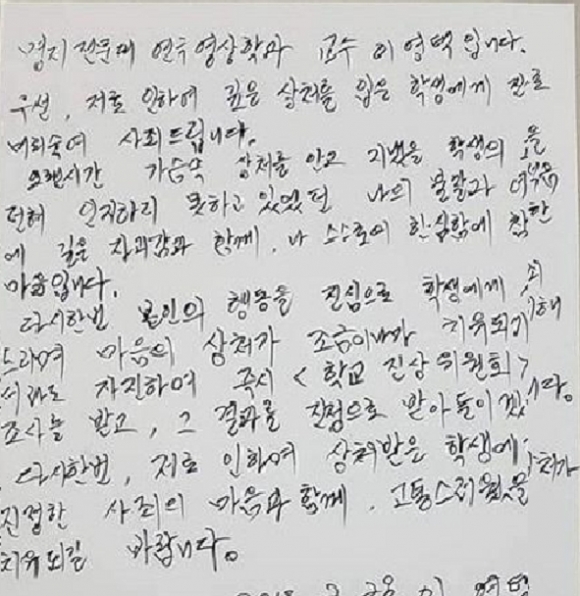 명지전문대 연극영상학과 교수 이영택입니다.
우선, 저로 인하여 깊은 상처를 입은 학생에게 진심으로
머리숙여 사죄드립니다.
오랜시간 가슴속 상처를 안고 지냈을 학생의
전혀 인지하지 못하고 있었던 나의 불찰과
에 깊은 자괴감과 함께, 나 스스로의 한심함에 참담한
마음입니다.
다시한번 본인의 행동을 진심으로 학생에게
드리며 마음의 상처가 조금이나마 치유되기
서라도 자진하여 즉시 <학교 진상위원회>
조사를 받고, 그 결과를 진정으로 받아들이겠
다시한번, 저로 인하여 상처받은 학생에
진정한 사죄의 마음과 함께, 고통스러웠을
치유되길 바랍니다.